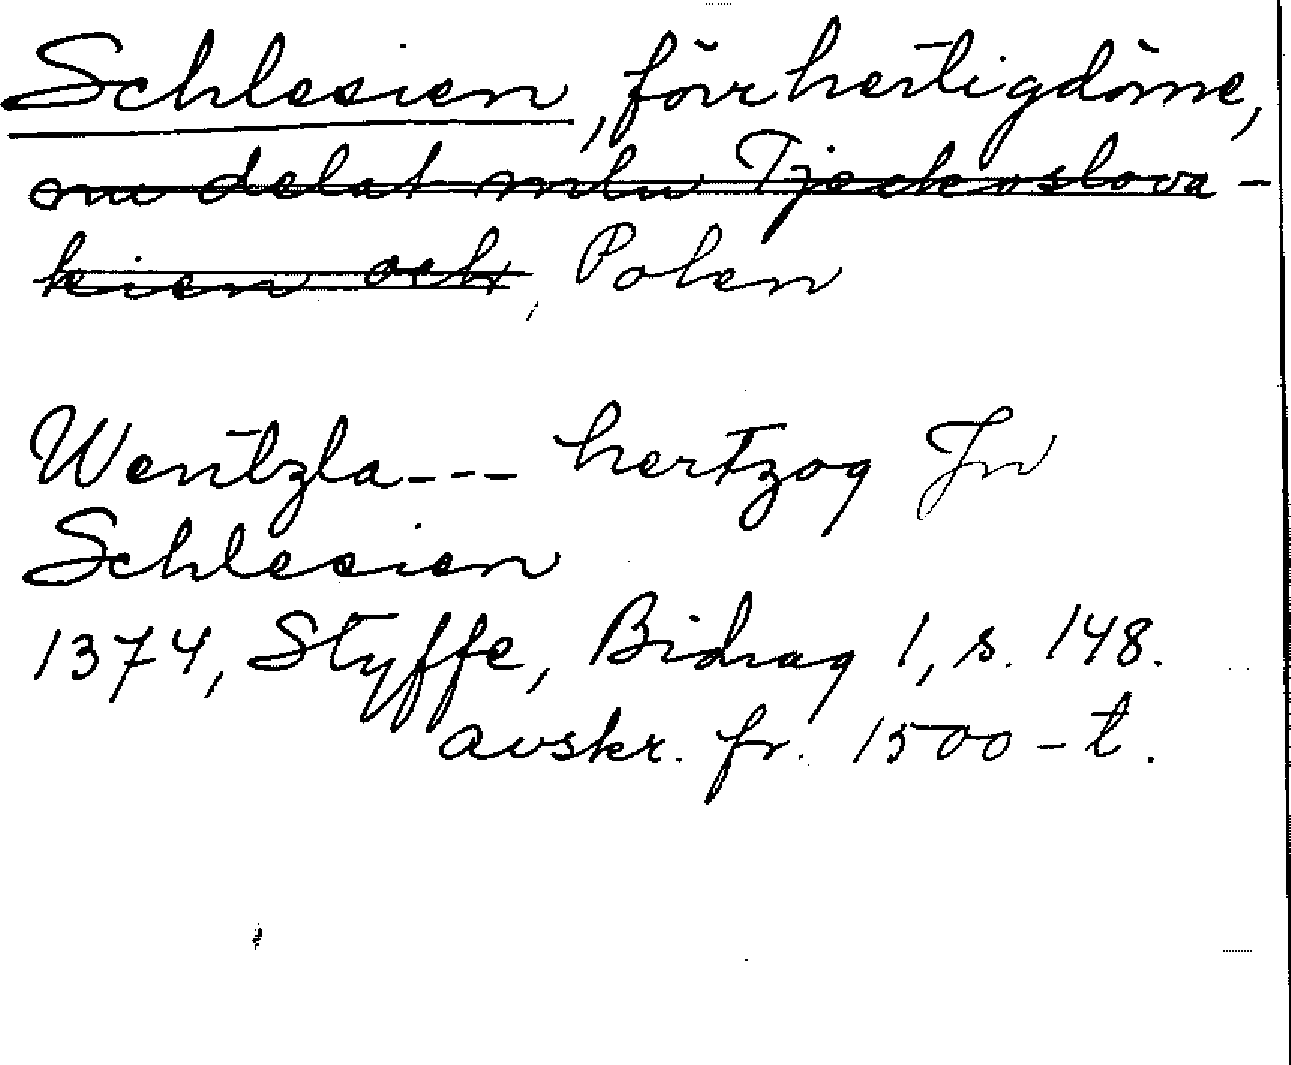 Schlesien, förr hertigdöme,
nu delat mln Tjeckoslova-
kien och, Polen
Wentzla--- hertzog Jn
Schlesien
1374, Styffe, Bidrag 1, s. 148.
avskr. fr. 1500-t.